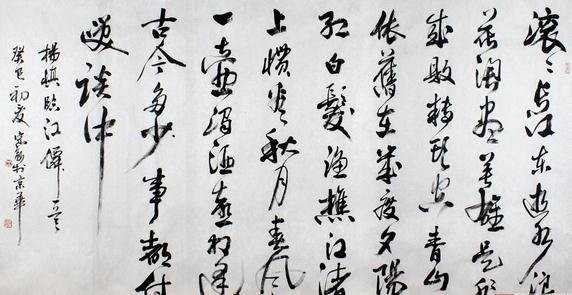 滚〻长江东逝水浪
花淘尽英雄是非
成败转头空青山
依舊在几度夕陽
红白髮渔樵江渚
上惯看秋月春风
一壶浊酒喜相逢
古今多少事都付
笑谈中
楊慎临江僊
癸巳初夏 於京華